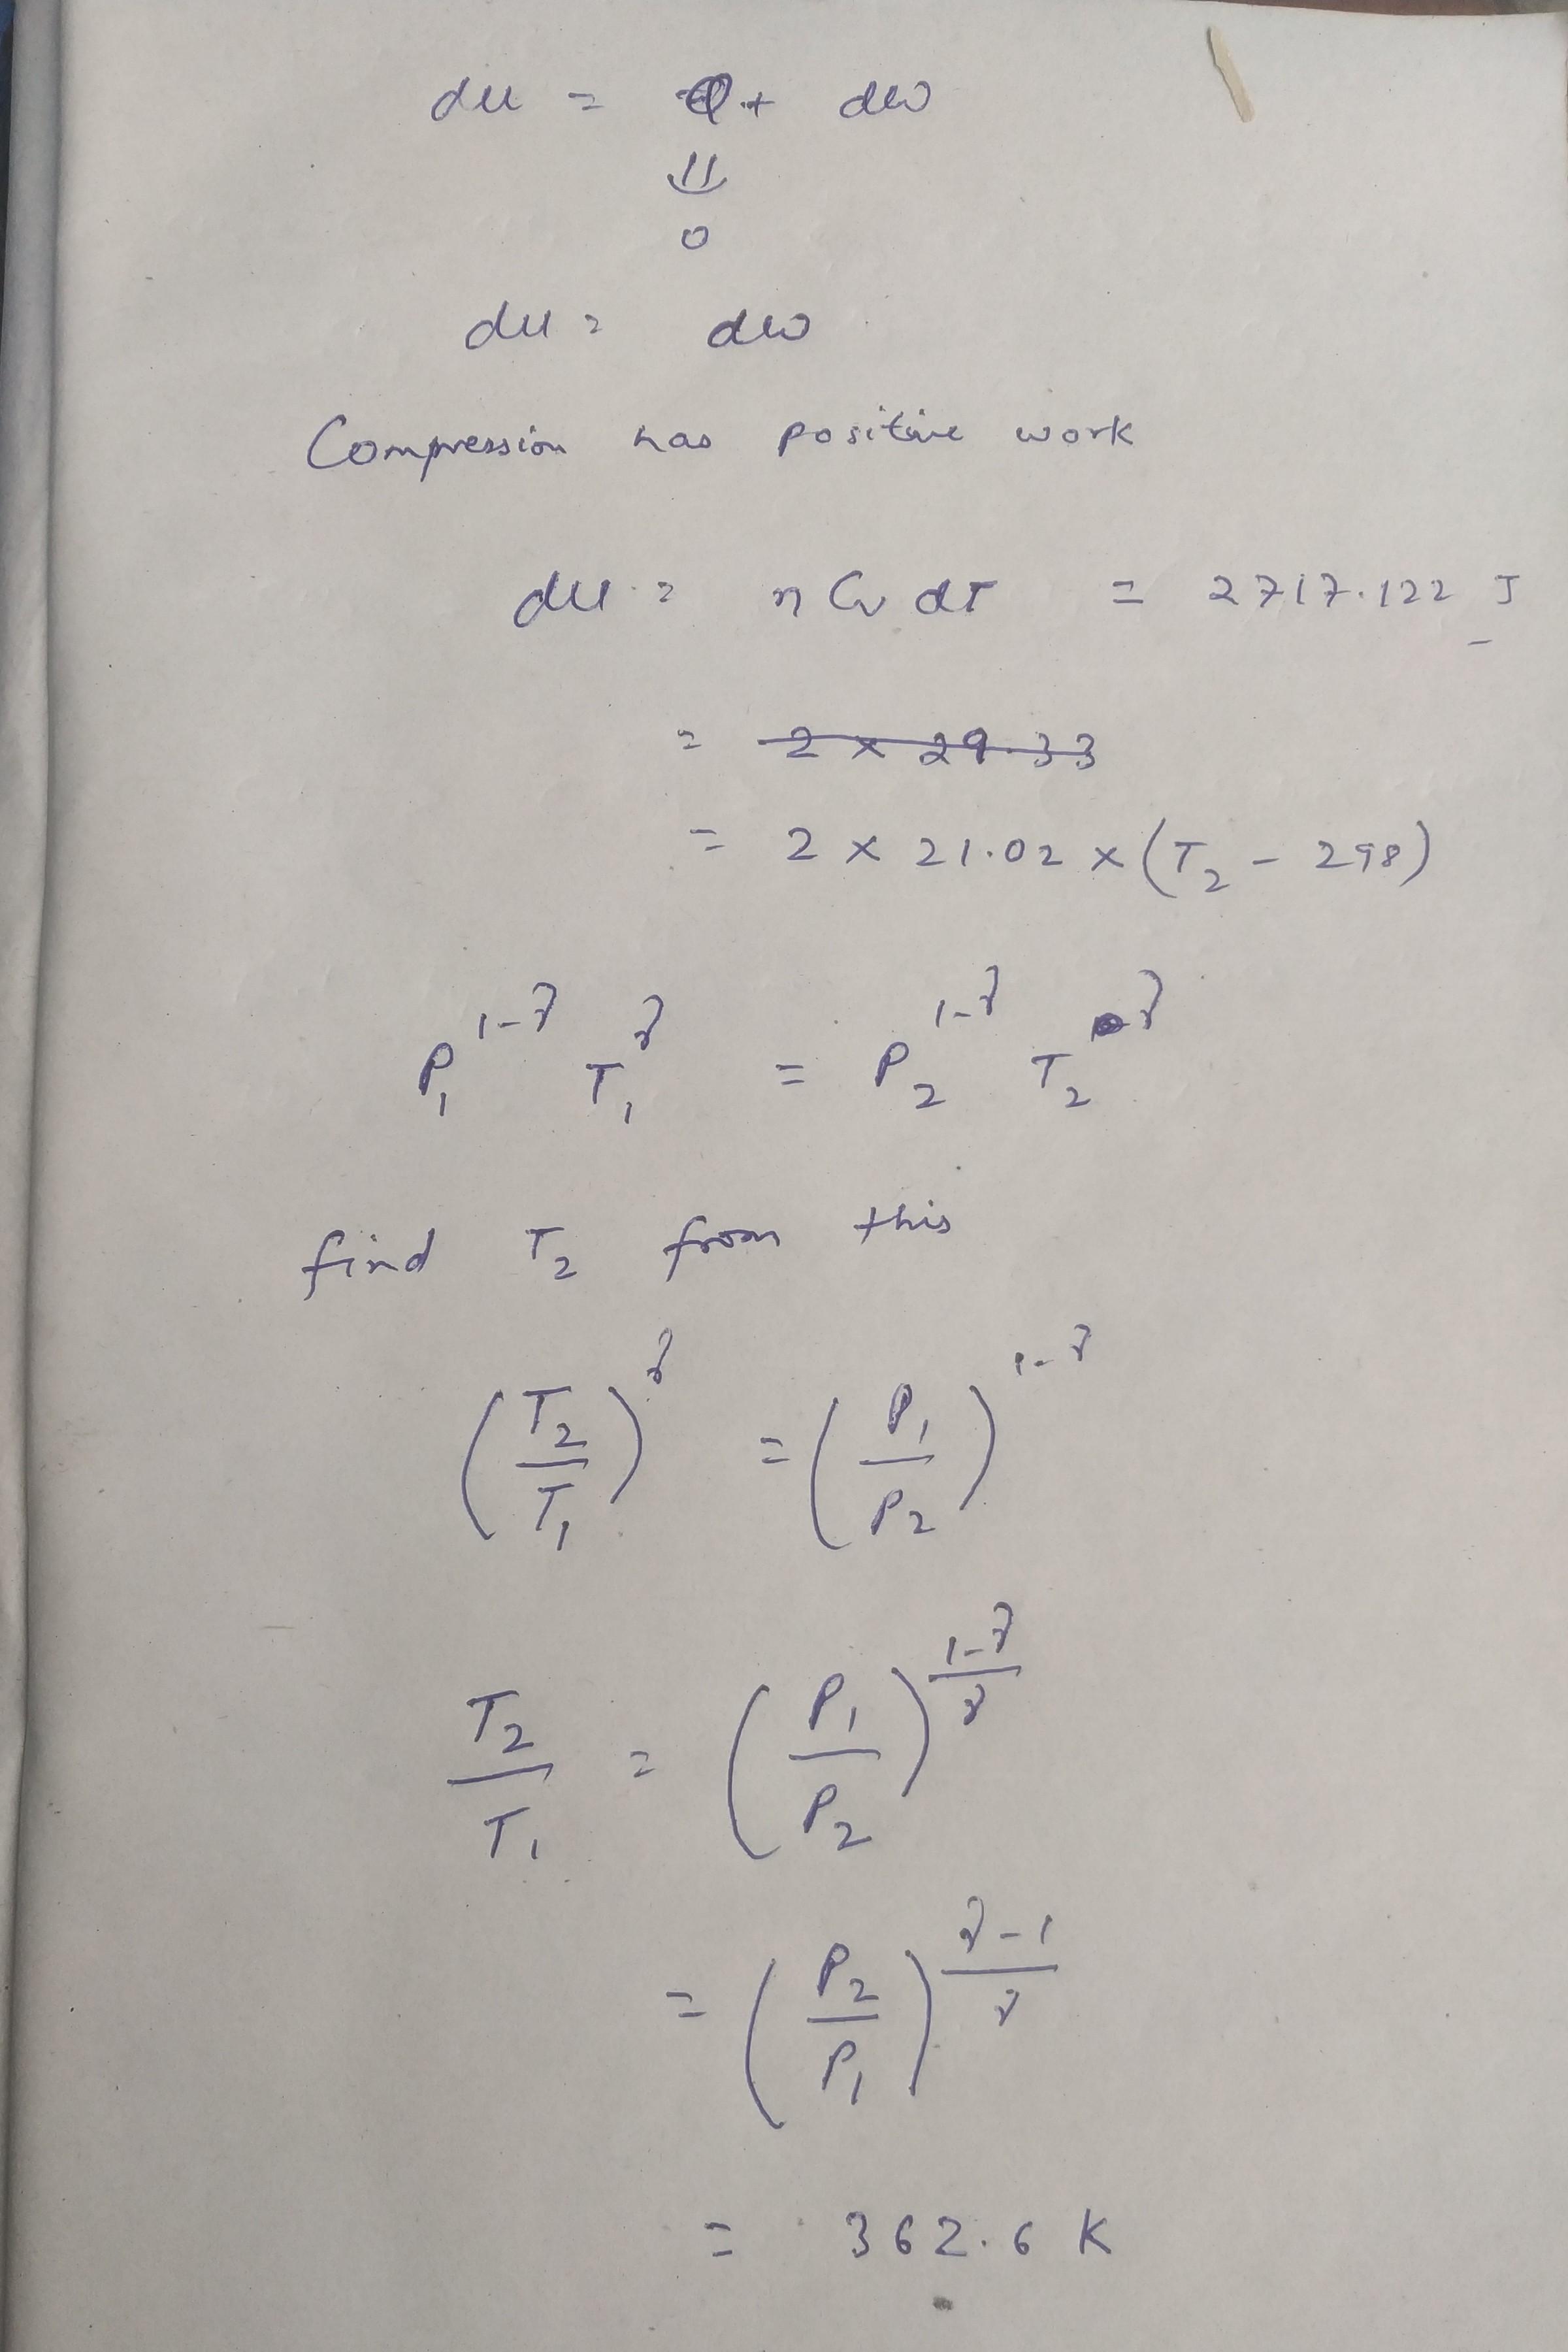 du = Q + dw
||
0
du = dw
Compression has positive work
du = n Cv dT = 2717.122 J
= 2 x 29.33
= 2 x 21.02 x (T2 - 298)
P1^1-γ T1^γ = P2^1-γ T2^γ
find T2 from this
(T2/T1)^γ = (P1/P2)^1-γ
T2/T1 = (P1/P2)^(1-γ)/γ
= (P2/P1)^(γ-1)/γ
= 362.6 K